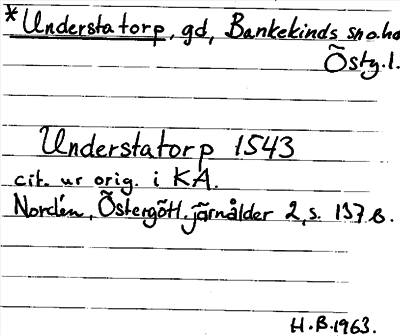 *Understatorp, gd, Bankekinds sn o hd
Östg.l.
Understatorp 1543
cit. ur orig. i KA.
Nordén, Östergötl. järnålder 2, s. 137 B.
H.B. 1963.